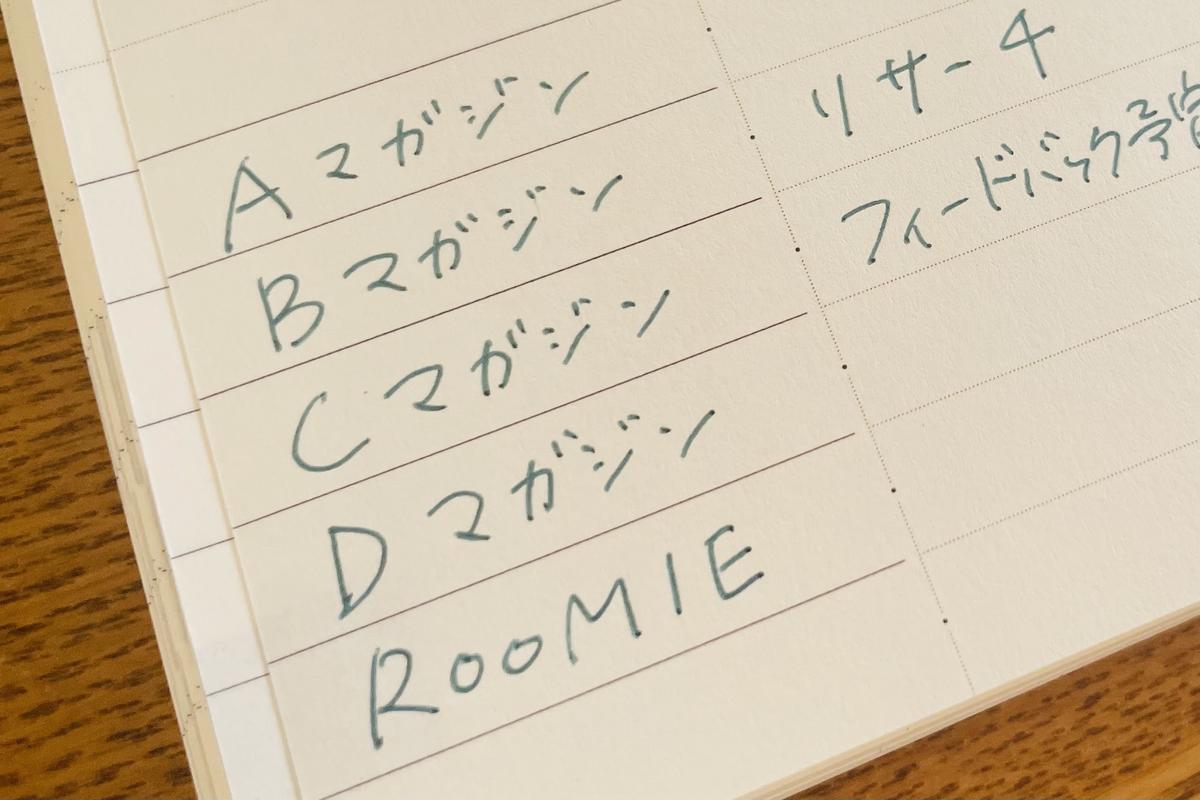 Aマガジン
Bマガジン
Cマガジン
Dマガジン
ROOMIE
リサーチ
フィードバック